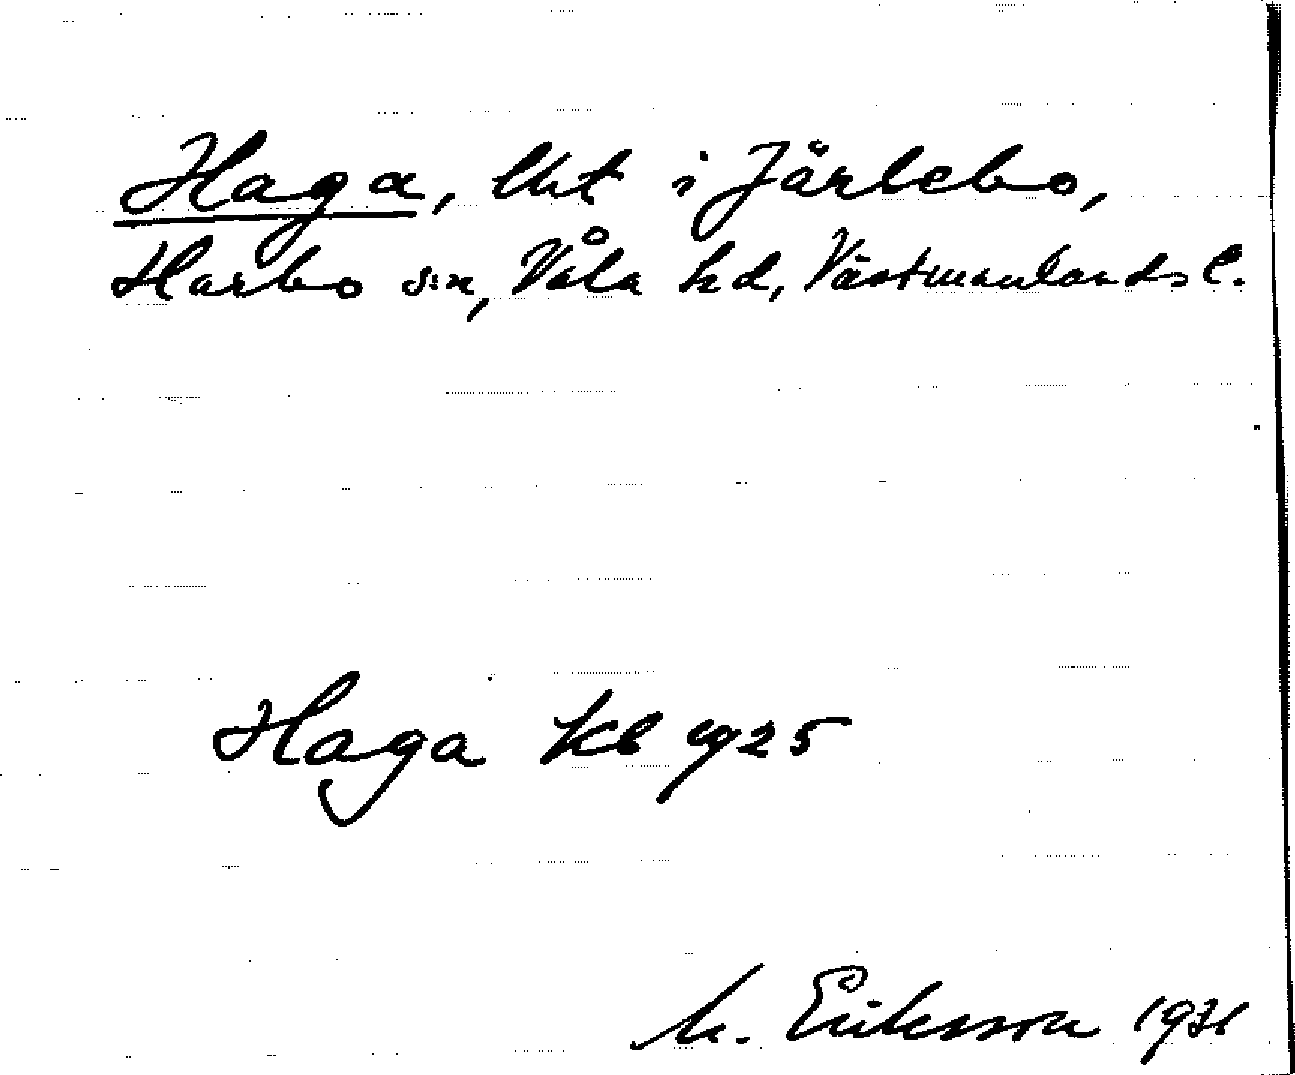 Haga, lht i Järlebo,
Harbo sn, Våla hd, Västmanlands l.
Haga Kb 1925
M. Eriksson 1931